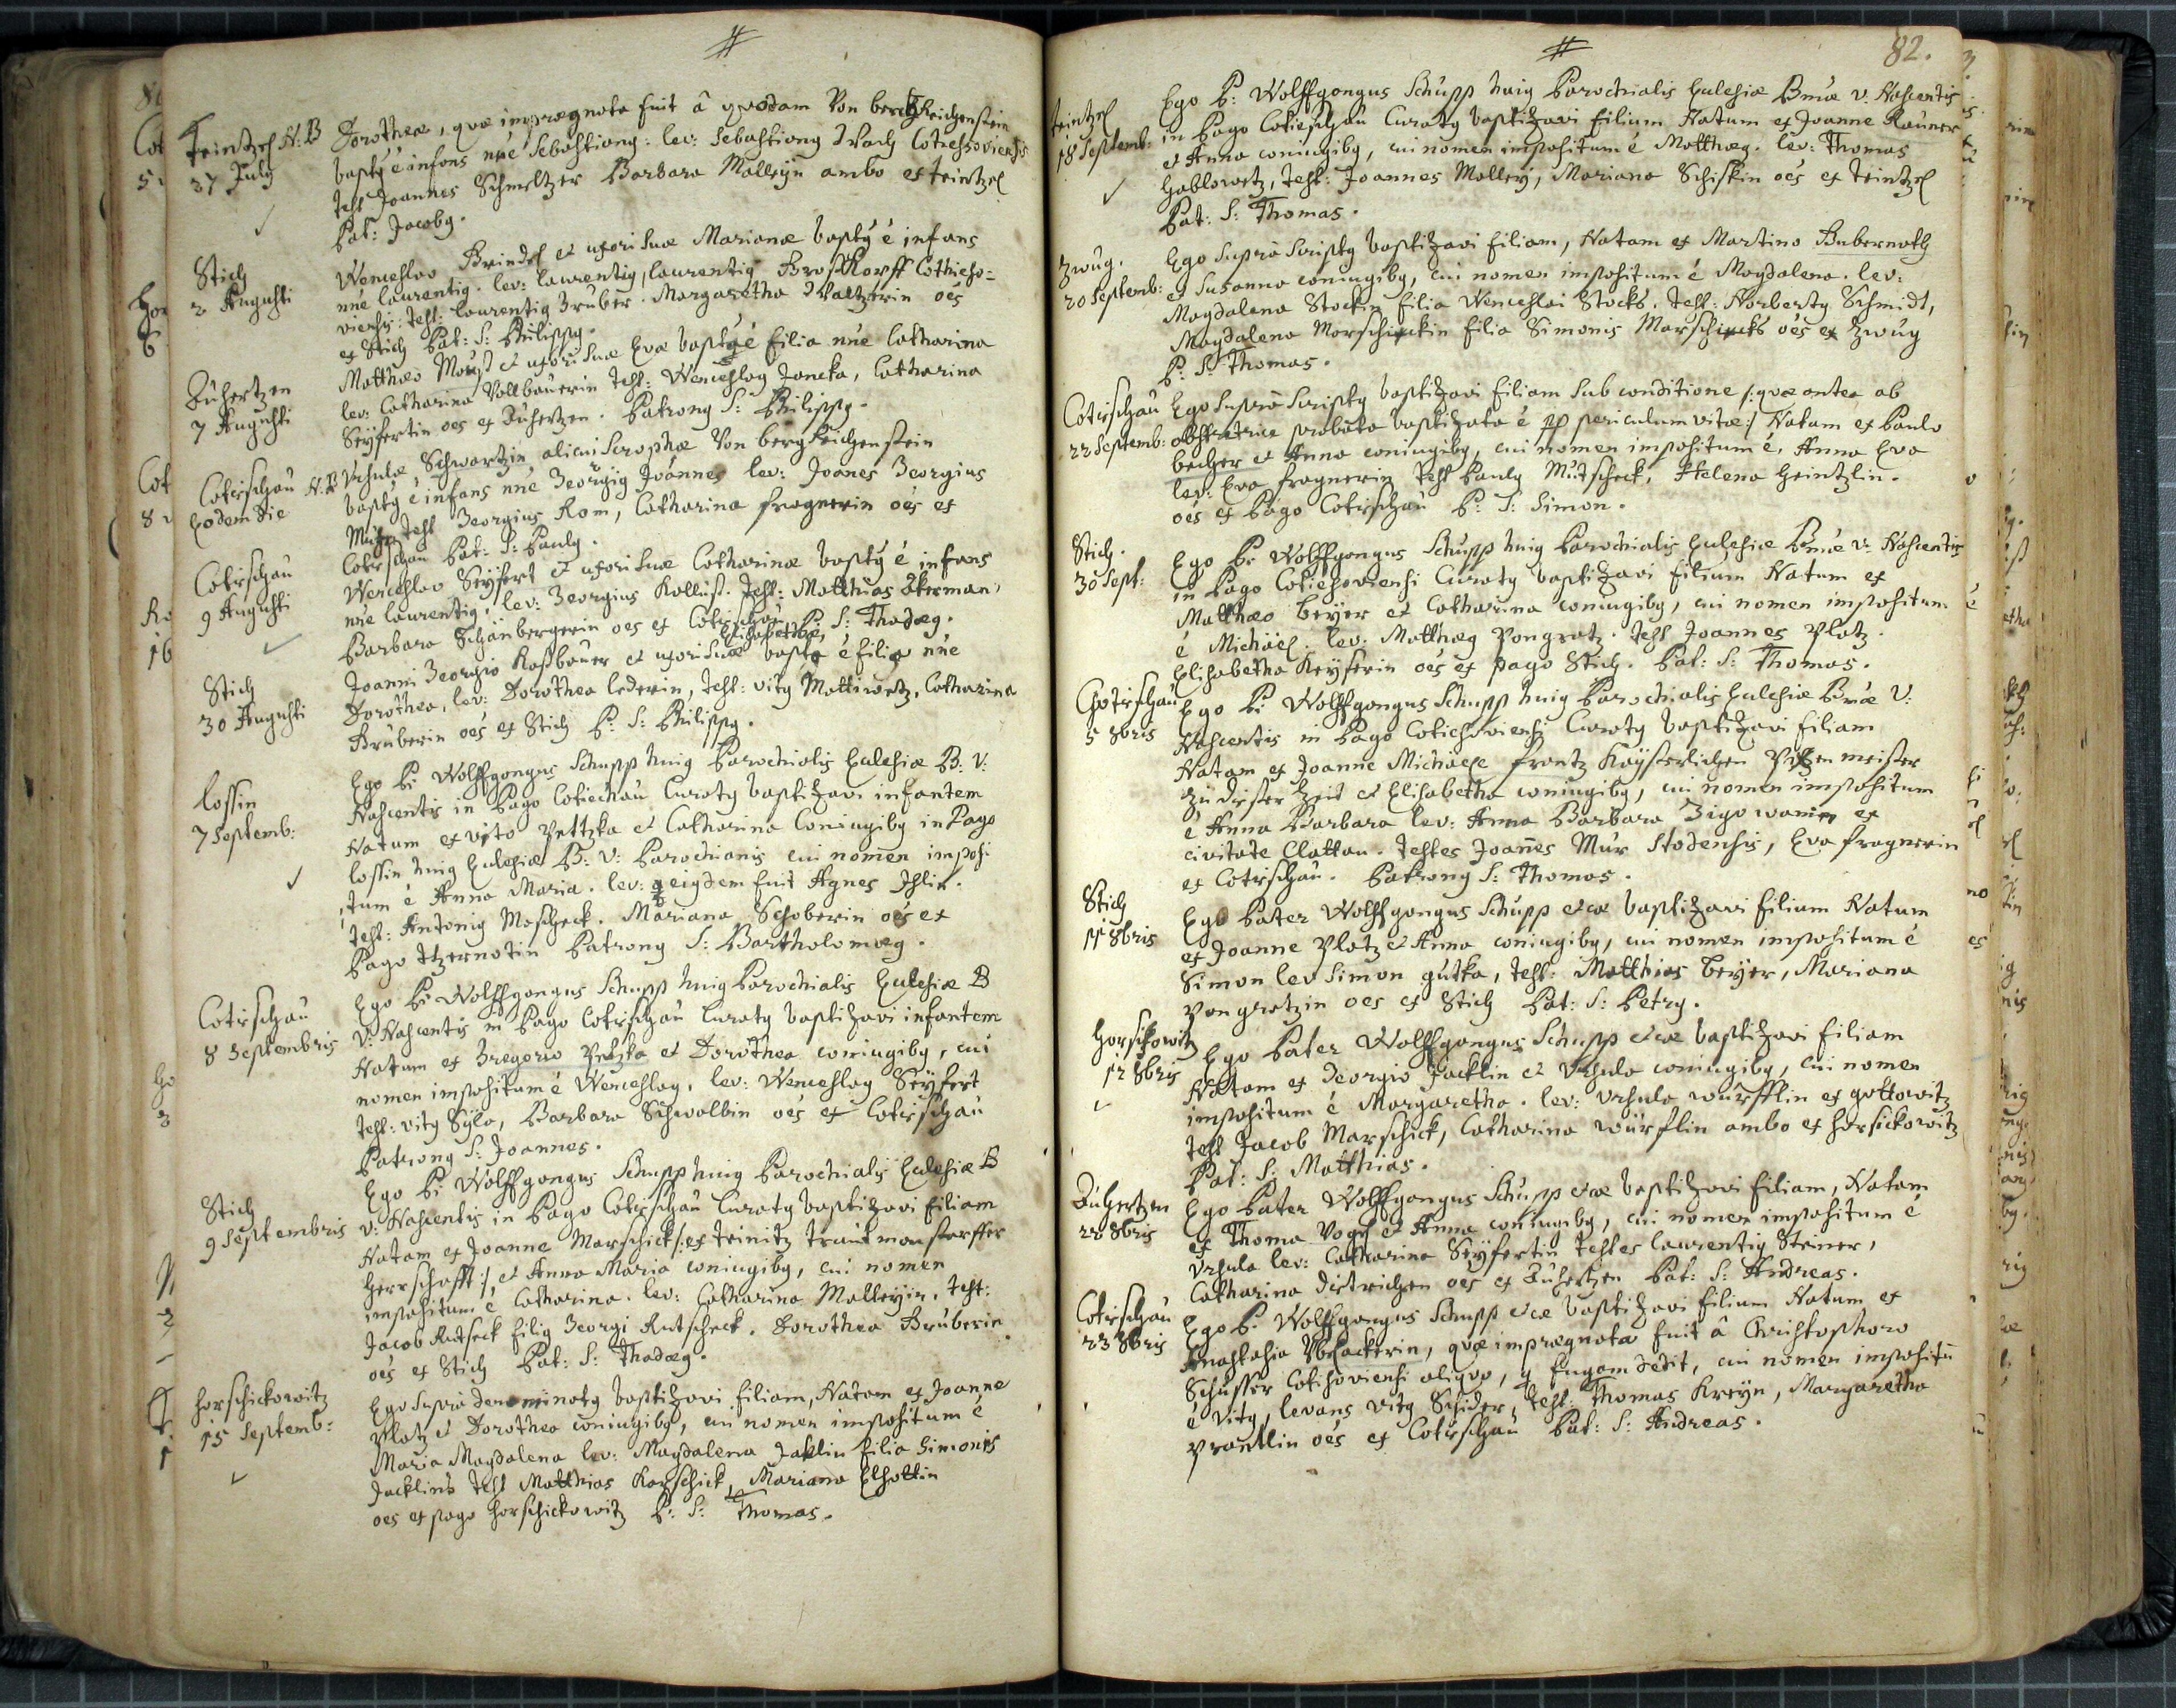 Teintzl N.B
37 July
Dorothea, quæ imprægnata fuit â quodam Von berg Reichenstein
bapty é infans nné Sebastiang: lev: Sebastiang Wach Cotieshoviensis
test Joannes Schmeltzer Barbara Malleÿn ambo ex teintzel
Pat: Jacobg.
Stich
2 Augusti
Wenceslao Breindl et uxori suæ Marianæ bapty é infans
nné laurentig. lev: laurentig
viensis: test: laurentig Gruber. Margaretha Waltzerin oés
ex Stich Pat: S: Philippg.
Zuhertzen
7 Augusti
Matthæo et uxori suæ Evæ bapty é filia nné Catharina
lev: Catharina Vollbauerin test: Wenceslag Jancka, Catharina
Seÿfertin oes ex Zuhertzen. Patrong S: Philippg.
Cotieschau N.B
Eodem die
Ursulæ Schwartzin alicui Scrophæ Von berg Reichenstein
bapty é infans nné Georgig Joannes lev: Joanes Georgius
test Georgius Rom, Catharina fragnerin oés ex
Cotieschau Pat: S: Paulg.
Cotieschau
9 Augusti
Wenceslao Seÿfert et uxori suæ Catharinæ bapty é infans
nné laurentig. lev: Georgius Kolluß. test: Matthias Akerman,
Barbara Schönbergerin oes ex Cotieschau P: S: Thadæg.
Stich
30 Augusti
Elisabethæ
Joanni Georgio Roßbauer et uxori suæ bapta é filia nné
Dorothea, lev: Dorothea lederin, test: vity Mattiwetz, Catharina
Bruberin oés ex Stich P: S: Philippg.
lossin
7 Septemb:
Ego P: Wolffgangus Schupp huig Parochialis Eulesiæ B: V:
Nascentis in Pago Cotiechau Curaty baptizavi infantem
Natum ex vito Pettzka et Catharina Coniugibg in Pago
lossin huig Eulesiæ B: V: Parochianis cui nomen imposi
tum é Anna Maria. lev: eigdem fuit Agnes Ihlin.
test: Antonig Moscheck. Mariana Schoberin oés ex
Pago Tzernotin Patrong S: Bartholomæg.
Cotieschau
8 Septembris
Ego P: Wolffgangus Schupp huig Parochialis Eulesiæ B
V: Nascentis in Pago Cotieschau Curaty baptizavi infantem
Natum ex Gregorio Petzka et Dorothea coniugibg, cui
nomen impositum é Wenceslag. lev: Wenceslag Seÿfert
test: vity Sÿla, Barbara Schwalbin oés ex Cotieschau
Patrong S: Joannes.
Stich
9 Septembris
Ego P: Wolffgangus Schupp huig Parochialis Eulesiæ B
V: Nascentis in Pago Cotieschau Curaty baptizavi filiam
Natam ex Joanne Marschick /: ex teinitz trautmanstorffer
herrschafft :/ et Anna Maria coniugibg, cui nomen
impositum é Catharina. lev: Catharina Malleÿin. test:
Jacob Rutscheck filig Georgi Rutscheck. Dorothea Bruberin
oés ex Stich Pat: S: Thadæg.
Horschickowitz
15 Septemb:
Ego supra denominaty baptizavi filiam, Natam ex Joanne
Platz et Dorothea coniugibg, cui nomen impositum é
Maria Magdalena lev: Magdalena Jaklin filia Simonis
Jacklins test Matthias Karschick, Mariana Elhottin
oes ex pago Horschickowitz P: S: Thomas.
82.
teintzel
18 Septemb:
Ego P: Wolffgangus Schupp huig Parochialis Eulesiæ Bmæ V: Nascentis
in Pago Cotieschau Curaty baptizavi filium Natum ex Joanne Rauner
et Anna coniugibg, cui nomen impositum é Matthæg. lev: Thomas
Gablowetz, test: Joannes Malleÿ, Mariana Schiskin oés ex teintzel
Pat: S: Thomas.
Zwug.
20 Septemb:
Ego supra scripty baptizavi filiam, Natam ex Martino Bubernath
et Susanna coniugibg, cui nomen impositum é Magdalena. lev:
Magdalena Stockin filia Wenceslai Stocks. test: Norberty Schmidt,
Magdalena Marschickin filia Simonis Marschicks oés ex Zwug
P: S: Thomas.
Cotieschau
22 Septemb:
Ego supra scripty baptizavi filiam sub conditione /: quæ antea ab
obstetrice probata baptizata é pp periculum vitæ :/ Natam ex Paulo
becher et Anna coniugibg, cui nomen impositum é, Anna Eva
lev: Eva fragnerin test Paulg Mutscheck, Helena Heintzlin.
oés ex Pago Cotieschau P: S: Simon.
Stich.
30 Sept:
Ego P: Wolffgangus Schupp huig Parochialis Eulesiæ Bmæ V: Nascentis
in Pago Cotieshoviensi Curaty baptizavi filium Natum ex
Matthæo Beÿer et Catharina coniugibg, cui nomen impositum
é Michäel lev: Matthæg Pangratz. test Joannes Platz.
Elisabetha Keÿserin oés ex pago Stich. Pat: S: Thomas.
Chotieschau
5 8bris
Ego P: Wolffgangus Schupp huig Parochialis Eulesiæ Bmæ V:
Nascentis in Pago Cotieshoviensi Curaty baptizavi filiam
Natam ex Joanne Michäele frantz Kaÿserlichen
zu dieser Zeit et Elisabetha coniugibg, cui nomen impositum
é Anna Barbara lev: Anna Barbara ex
civitate Clattau. testes Joannes Mur Stodensis, Eva fragnerin
ex Cotieschau. Patrong S: Thomas.
Stich
11 8bris
Ego Pater Wolffgangus Schupp etcæ baptizavi filium Natum
ex Joanne Platz et Anna coniugibg, cui nomen impositum é
Simon lev Simon gutka, test: Matthias Beÿer, Mariana
Pangratzin oes ex Stich Pat: S: Petrg.
Horschowitz
12 8bris
Ego Pater Wolffgangus Schupp etcæ baptizavi filiam
Natam ex Georgio Jacklin et Ursula coniugibg, cui nomen
impositum é Margaretha. lev: Ursula würfflin ex gottowitz
test Jacob Marschick, Catharina würflin ambo ex horsickowitz
Pat: S: Matthias.
Zuhertzen
22 8bris
Ego Pater Wolffgangus Schupp etcæ baptizavi filiam, Natam
ex Thoma Vogl et Anna coniugibg, cui nomen impositum é
Ursula lev: Catharina Seÿfertin testes laurentig Steiner,
Catharina Dietrichen oes ex Zuhertzen Pat: S: Andreas.
Cotieschau
23 8bris
Ego P: Wolffgangus Schupp etcæ baptizavi filium Natum ex
Anastasia, quæ imprægnata fuit â Christophoro
Schusser Cotishoviensi aliquo, q fugam dedit, cui nomen impositu
é vity, levans vity Schider, test: Thomas Kreÿn, Margaretha
Prantlin oés ex Cotieschau Pat: S: Andreas.